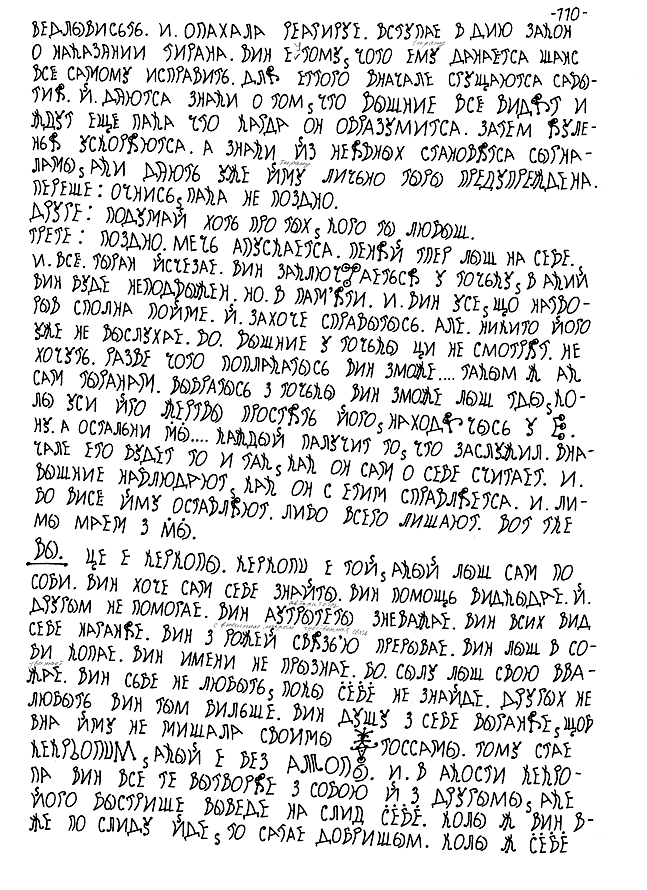 -110-
ВЕДЛЮВИСЬТЬ. И. ОПАХАЛА РЕАГИРУЕ. ВСТУПАЕ В ДИЮ ЗАКОН
О НАКАЗАНИИ ТИРАНА. ВИН Е ТОМУ, ЧОТО ЕМУ ДАНАЕТСА ШАНС
ВСЕ САМОМУ ИСПРАВИТЬ. ДЛЯ ЕТТОГО ВНАЧАЛЕ СГУЩАЮТСА САБЫ-
ТИЯ. Й. ДАЮТСА ЗНАКИ О ТОМ, ЧТО ВЫШНИЕ ВСЁ ВИДЯТ И
ЖДУТ ЕЩЕ ПАКА ЧТО КАГДА ОН ОБРАЗУМИТСА. ЗАТЕМ ЯУЛЕ-
НЬЯ УСКОРЯЮТСА. А ЗНАКИ ЙЗ НЕЯВНЫХ СТАНОВЯТСА СЫГНА-
ЛАМЫ, АКИ ДАЮТЬ УЖЕ ЙМУ ЛИЧЬНО ТЫРЫ ПРЕДУПРЕЖДЕНА.
ПЕРЕШЕ: ОЧНИСЬ, ПАКА НЕ ПОЗДНО.
ДРУГЕ: ПОДУМАЙ ХОТЬ ПРО ТЫХ, КОГО ТЫ ЛЮБЫШ.
ТРЕТЕ: ПОЗДНО. МЕЧЬ АПУСКАЕТСА. ПЕНЯЙ ТПЕР ЛЫШ НА СЕБЕ.
И. ВСЕ. ТЫРАН ЙСЧЕЗАЕ. ВИН ЗАКЛЮЧАЕТЬСЯ У ТОЧЬКУ, В АКИЙ
ВИН БУДЕ НЕПОДВЫЖЕН. НО. В ПАМ'ЯТИ. И. ВИН УСЕ, ЩО НАТВО-
РЫВ СПОЛНА ПОЙМЕ. Й. ЗАХОЧЕ СПРАВЫТЫСЬ. АЛЕ. НИКИТО ЙОГО
УЖЕ НЕ ВЫСЛУХАЕ. БО. ВЫШНИЕ У ТОЧЬКЫ ЦИ НЕ СМОТРЯТ. НЕ
ХОЧУТЬ. РАЗВЕ ЧОТО ПОПЛАКАТЫСЬ ВИН ЗМОЖЕ.... ТАКЫМ Ж АК
САМ ТЫРАНАМ. ВЫБРАТЫСЬ З ТОЧЬКЫ ВИН ЗМОЖЕ ЛЫШ ТДЫ, КО-
ЛЫ УСИ ЙГО ЖЕРТВЫ ПРОСТЯТЬ ЙОГО, НАХОДЯЧЫСЬ У Ё.
НУ. А ОСТАЛЬНИ МЫ.... КАЖДЫЙ ПАЛУЧИТ ТО, ЧТО ЗАСЛУЖИЛ. ВНА-
ЧАЛЕ ЕТО БУДЕТ ТО И ТАК, КАК ОН САМ О СЕБЕ СЧИТАЕТ. И.
ВЫШНИЕ НАБЛЮДАЮТ, КАК ОН С ЕТИМ СПРАВЛЯЕТСА. И. ЛИ-
БО ВИСЕ ЙМУ ОСТАВЛЯЮТ. ЛИБО ВСЕГО ЛИШАЮТ. ВОТ ТКЕ
МЫ МАЕМ З МЫ.
ВЫ. ЦЕ Е КЕРКОПЫ. КЕРКОПИ Е ТОЙ, АКЫЙ ЛЫШ САМ ПО
СОБИ. ВИН ХОЧЕ САМ СЕБЕ ЗНАЙТЫ. ВИН ПОМОЩЬ ВИДКЫДАЕ. Й.
ДРУГЫМ НЕ ПОМОГАЕ. ВИН АУТРЫТЕТЫ ЗНЕВАЖАЕ. ВИН ВСИХ ВИД
СЕБЕ НАГАНЯЕ. ВИН З РОЖЕЙ СВЯЗЬЮ ПРЕРЫВАЕ. ВИН ЛЫШ В СО-
БИ КОПАЕ. ВИН ИМЕНИ НЕ ПРОЗНАЕ. БО. СЫЛУ ЛЫШ СВОЮ ВВА-
ЖАЕ. ВИН СЬБЕ НЕ ЛЮБЫТЬ, ПОКЫ СЁБЁ НЕ ЗНАЙДЕ. ДРУГЫХ НЕ
ЛЮБЫТЬ ВИН ТЫМ БИЛЬШЕ. ВИН ДУШУ З СЕБЕ ВЫГАНЯЕ, ЩОБ
ВНА ЙМУ НЕ МИШАЛА СВОИМЫ ТОССАМЫ. ТОМУ СТАЕ
КЕКРЬОПИМ, АКЫЙ Е БЕЗ
ПА ВИН ВСЕ ТЕ ВЫТВОРЯЕ З СОБОЮ Й З ДРУГЫМЫ, АКЕ
ЙОГО БЫСТРИШЕ ВЫВЕДЕ НА СЛИД СЁБЁ. КОЛЫ Ж ВИН В-
ЖЕ ПО СЛИДУ ЙДЕ, ТО САТАЕ ДОБРИШЫМ. КОЛЫ Ж СЁБЁ